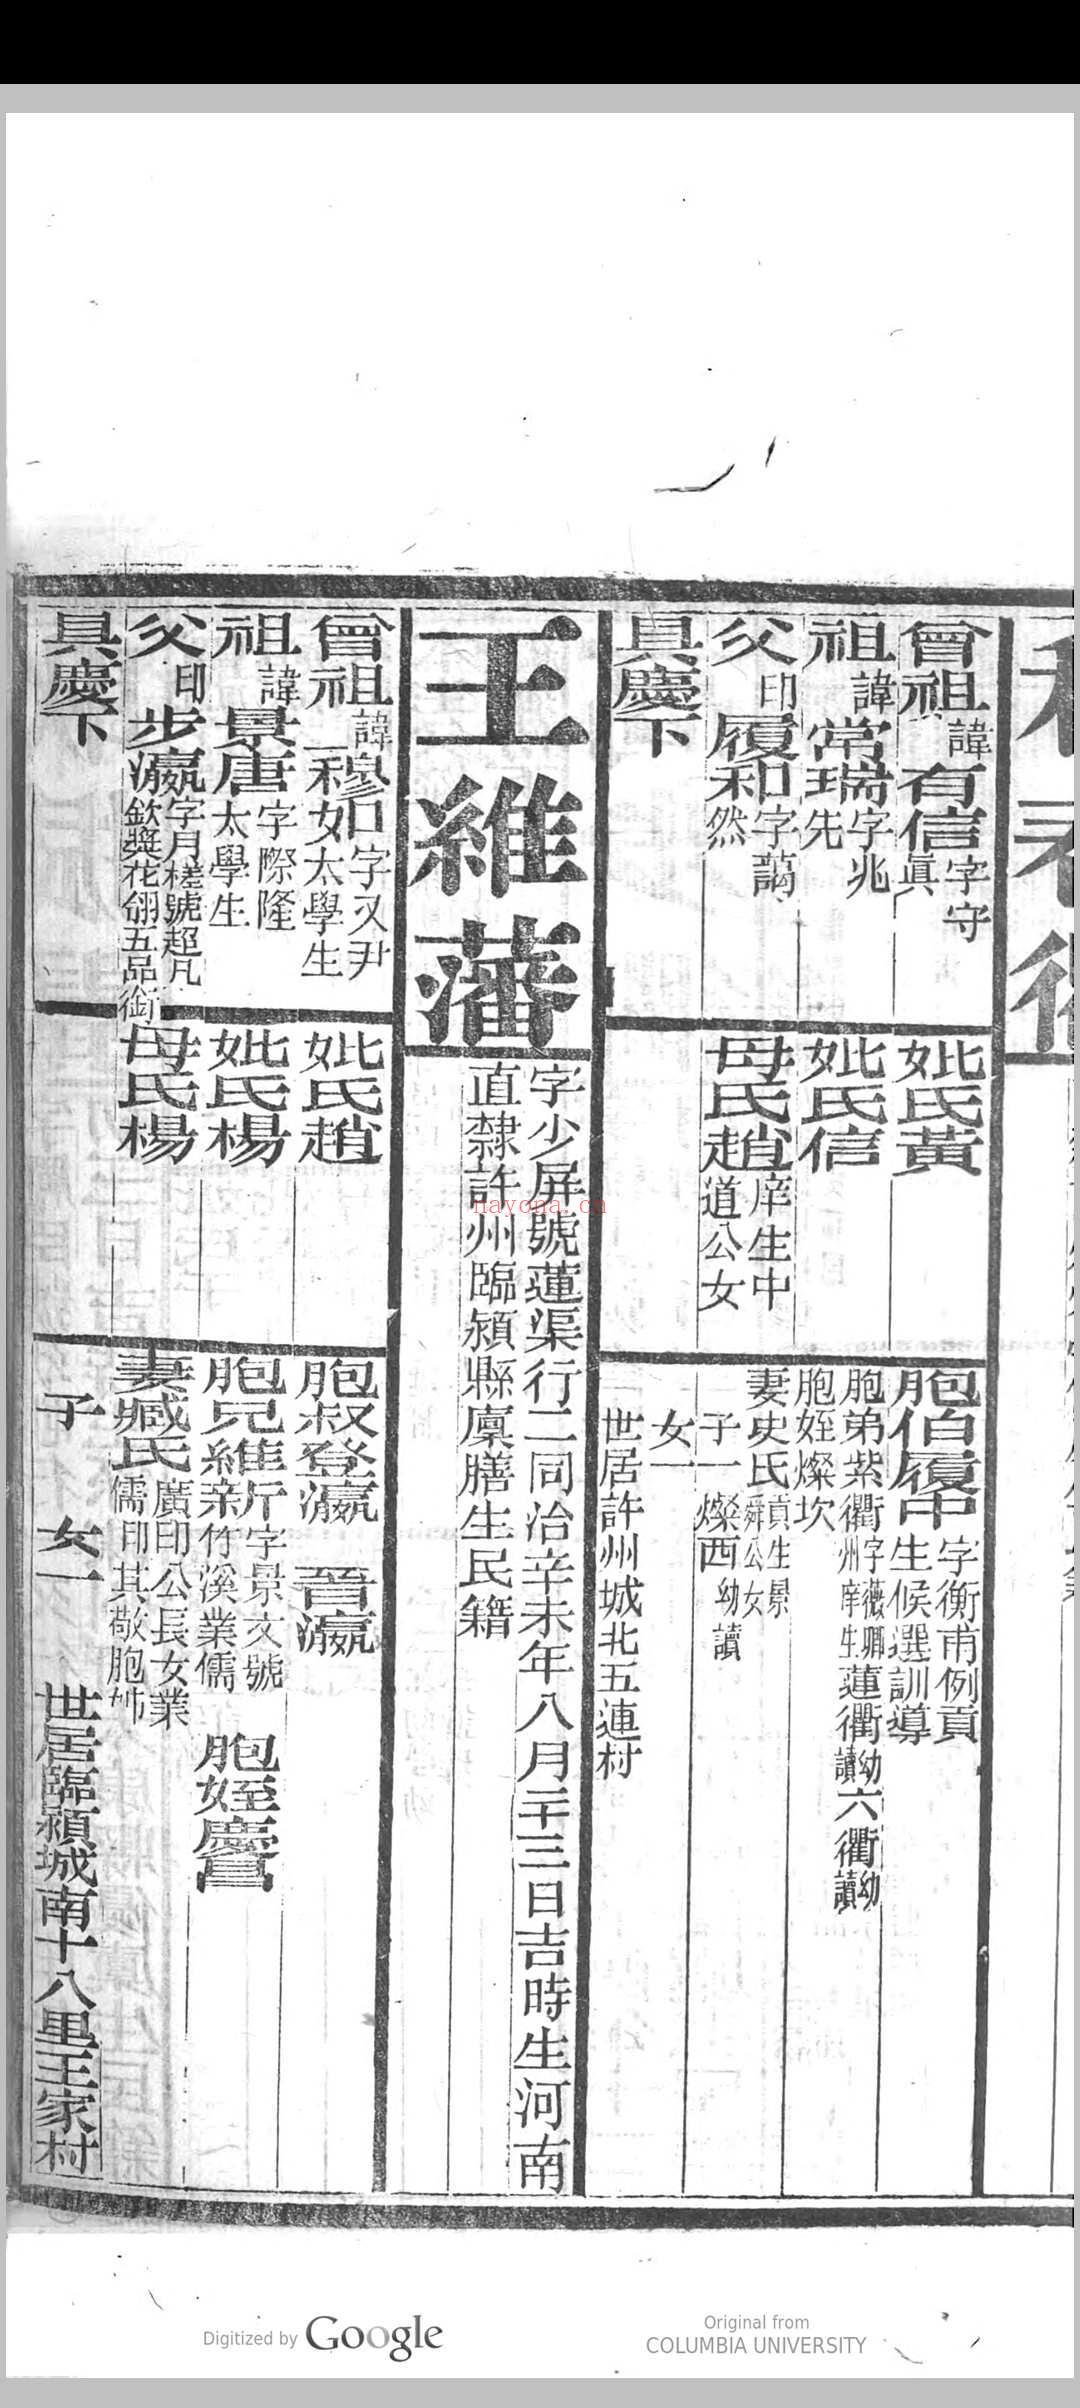 曾祖諱有信字守眞
祖諱常瑞字兆先
父印履和字藹然
具慶下
妣氏黃
妣氏信
母氏趙庠生中道公女
胞伯履中字衡甫例貢生候選訓導
胞弟紫衢字薇卿州庠生蓮衢幼讀六衢幼讀
胞姪燦坎
妻史氏貢生景舜公女
子一燦西幼讀
女一
世居許州城北五連村
王維藩
字少屏號蓮渠行二同治辛未年八月二十三日吉時生河南
直隸許州臨潁縣廩膳生民籍
曾祖諱穆一字又尹太學生
祖諱景唐字際隆太學生
父印步瀛字月槎號超凡欽奬花翎五品銜
具慶下
妣氏趙
妣氏楊
母氏楊
胞叔登瀛 晉瀛
胞兄維新字景文號竹溪業儒 胞姪慶昌
妻臧氏廣印公長女業儒印其敬胞姊
子 女一 世居臨潁城南十八里王家村
Digitized by Google
Original from
COLUMBIA UNIVERSITY
nayona.cn